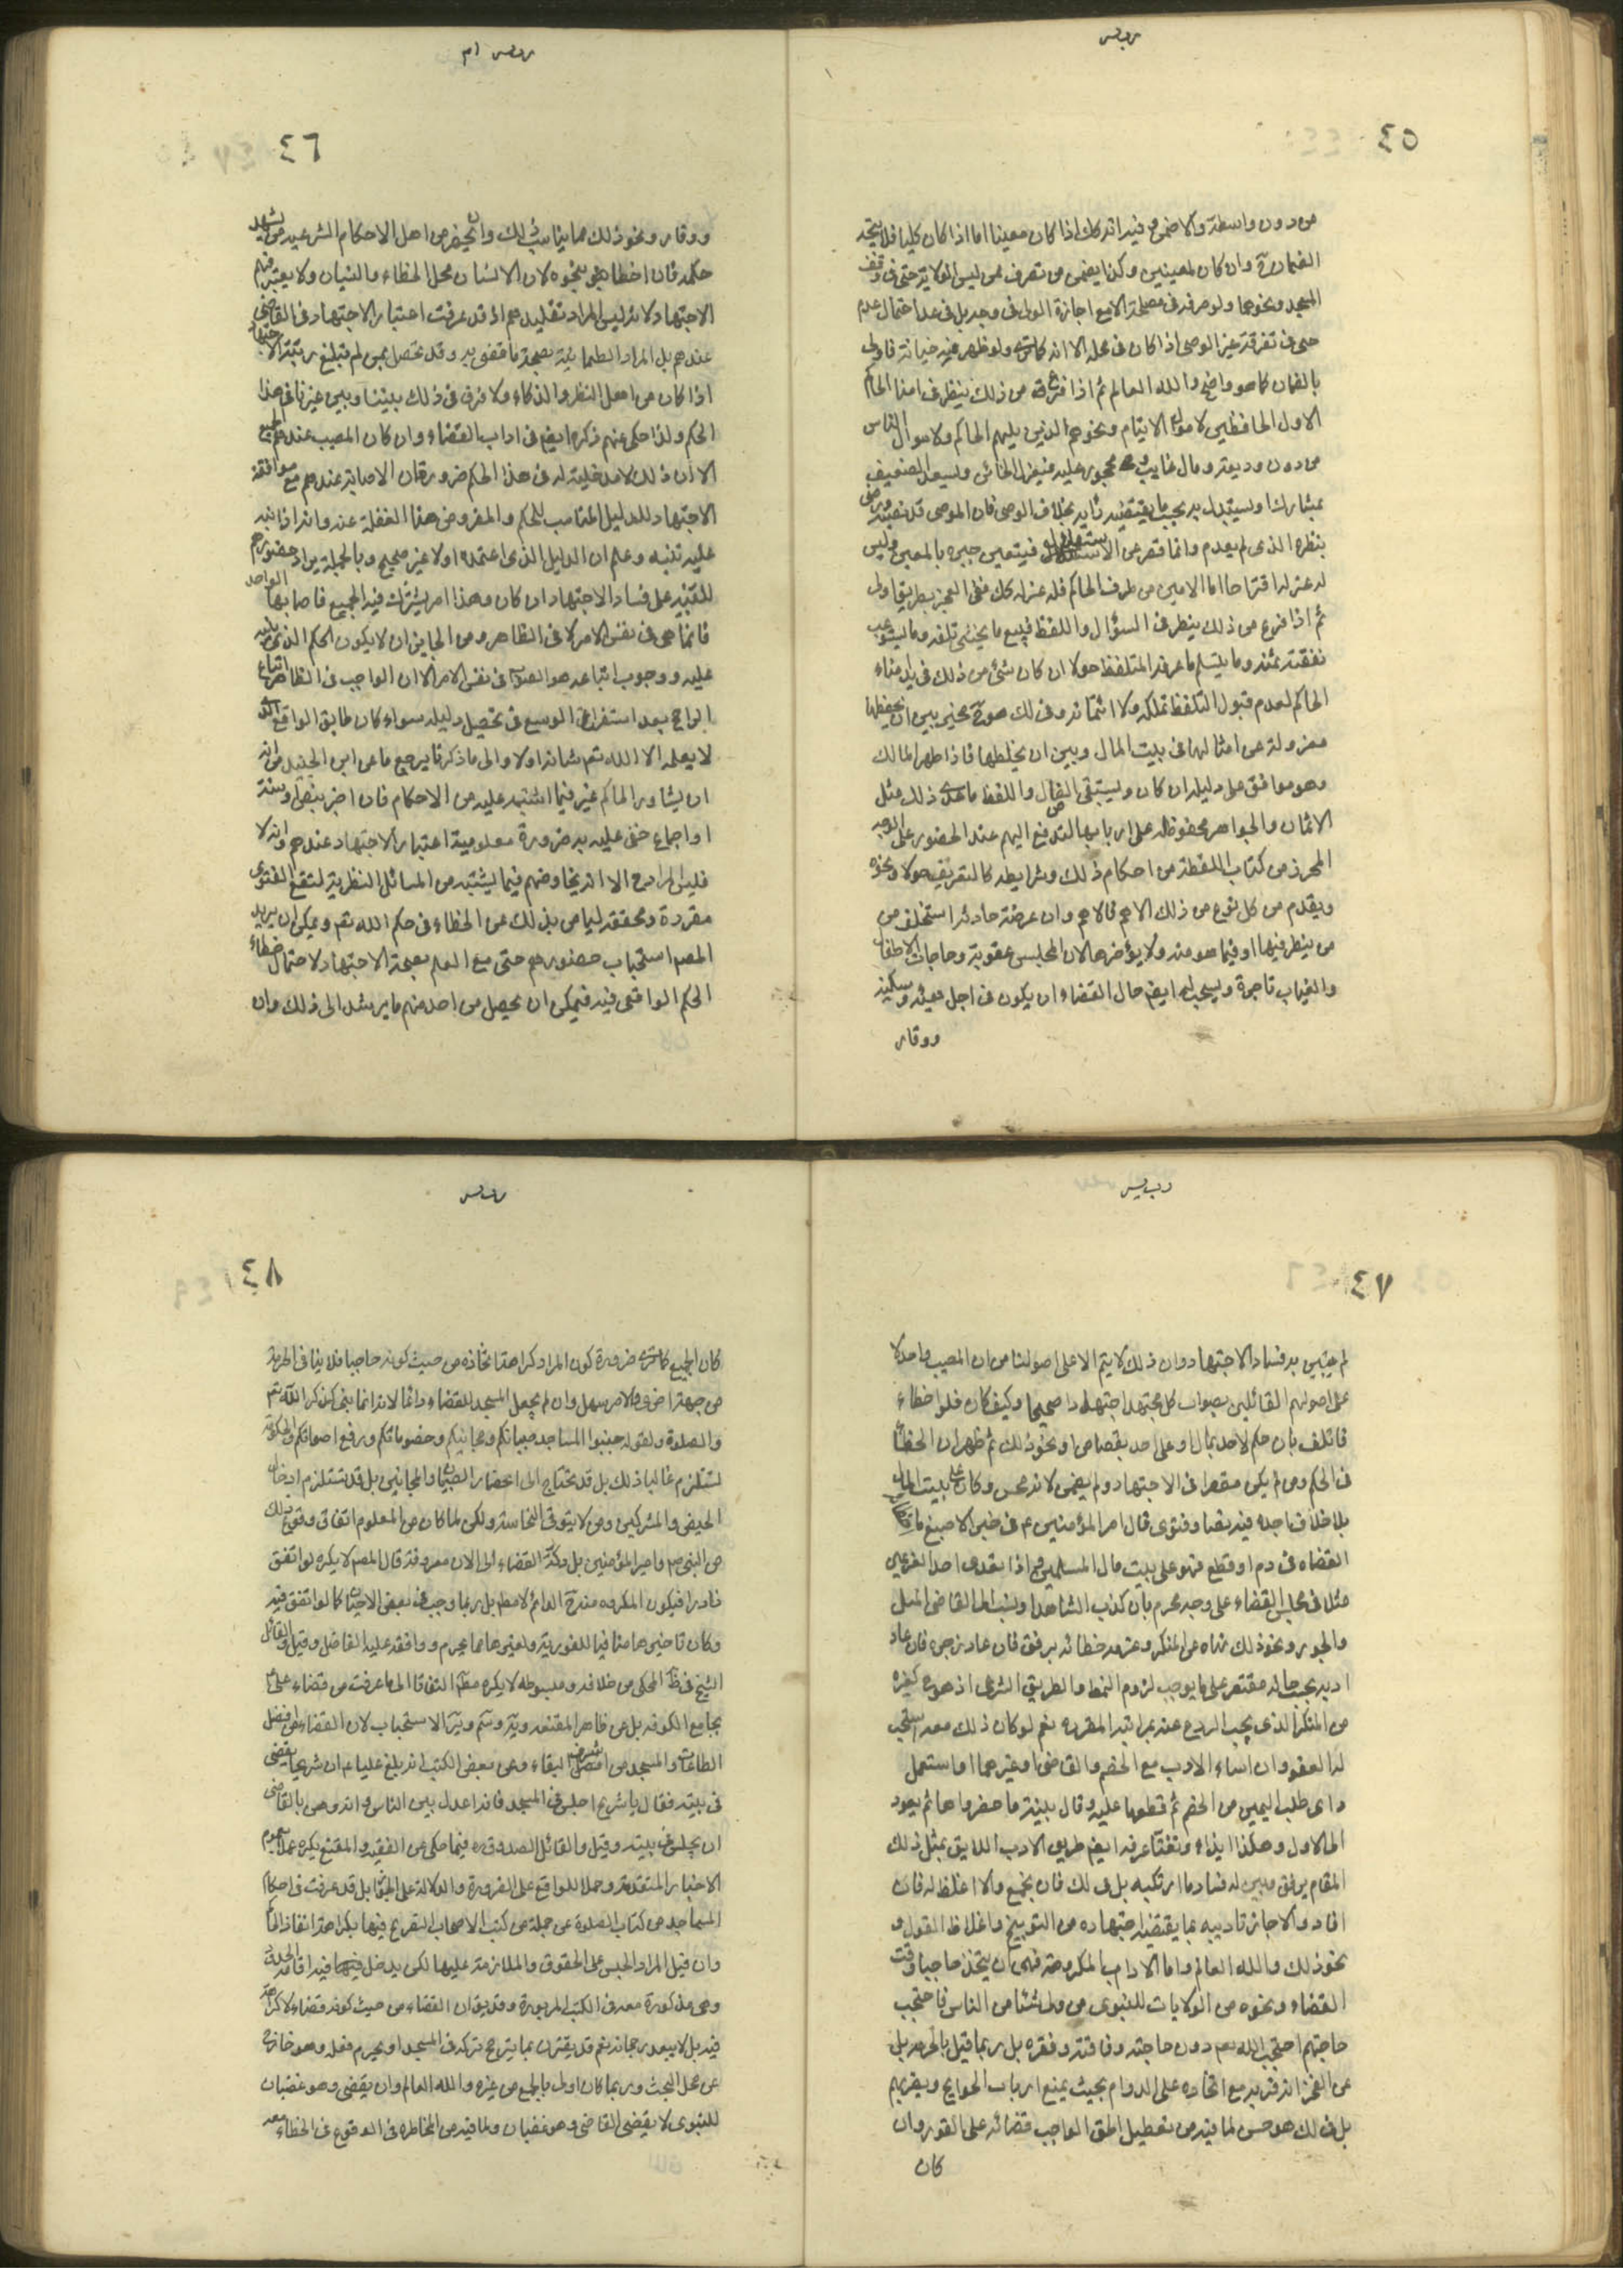 ٤٥
من دون واسطة والا ضمن فيه انه كك اذا كان معينا اما اذا كان كليا فلا يتجه
الضمان وان كان لمعينين وكذا يضمن من تصرف ممن ليس له الولاية حتى في وقف
المسجد ونحوهما ولو صرفه في مصلحة الا مع اجازة الولي في وجه بل في عدا احتمال عدم
حتى في تفرقة غير الوصي اذا كان في محله الا انه كما ترى ولو ظهر فيه خيانة فاولى
بالضمان كما هو واضح والله العالم ثم اذا فرغ من ذلك ينظر في امنا الحاكم
الاول الحافظين لاموال الايتام ونحوهم الذين يليهم الحاكم ولاموال الناس
من دون وديعة ومال غايب ومحجور عليه فيعزل الخائن ويسعد الضعيف
بمشارك او يستبدل به بحسب ما يقتضيه رأيه بخلاف الوصي فان الموصي قد نصبه ورضي
بنظره الذي لم يعدم وانما قصر عن الاستقلال فيتعين جبره بالمعين وليس
له عزله اقتراحا اما الامين من طرف الحاكم فله عزله كك ففي العجز بطريق اولى
ثم اذا فرغ من ذلك ينظر في السؤال واللقط فيبيع ما يخشى تلفه وما يستوعب
نفقته ثمنه وما يتسلم ما عرفه الملتقط حولا ان كان شئ من ذلك في يد امناء
الحاكم لعدم قبول الملتقط تملكه ولا ائتمانه وفي لك هو مخير بين ان يحفظها
معزولة عن امثالها في بيت المال وبين ان يخلطها فاذا ظهر المالك
وهو موافق على دليله ان كان ويستبقي الضال واللقط ما عدى ذلك مثل
الاثمان والجواهر محفوظة على اربابها لتدفع اليهم عند الحضور على الوجه
المحرر في كتاب اللقطة من احكام ذلك وشرايطه كالتعريف حولا ونحوه
ويقدم من كل نوع من ذلك الاهم فالاهم وان عرضت حادثة استخلف من
من ينظر فيها او فيما هو منه ولا يؤخرها لان المجلس عقوبة وحاجات الاطفال
والغياب ناجزة ويستحب له ايضا حال القضاء ان يكون في اجل هيئة وسكينة
ووقار
٤٦
ووقار ونحو ذلك مما يناسب ذلك وان يحضر من اهل الاحكام الشرعيه من يشهد
حكمه فان اخطا نبهوه لان الانسان محل الخطاء والنسيان ولا يعتبر فيهم
الاجتهاد لانه ليس المراد تقليدهم اذ قد عرفت اعتبار الاجتهاد في القاضي
عندهم بل المراد الطمانينة بصحة ما قضى به وقد تحصل بمن لم يبلغ رتبة الاجتهاد
اذا كان من اهل النظر والذكاء ولا فرق في ذلك بيننا وبين غيرنا في هذا
الحكم ولذا حكى عنهم ذكره ايضا في اداب القضاء وان كان المصيب عندهم الجميع
الا ان ذلك لا مدخلية له في هذا الحكم ضرورة ان الاصابة عندهم مع موافقة
الاجتهاد للدليل المناسب للحكم والمفروض هنا الغفلة عنه وانه اذا نبه
عليه تنبه وعلم ان الدليل الذي اعتمده اولا غير صحيح وبالجملة يراد حضورهم
للتنبيه على فساد الاجتهاد ان كان وهذا امر يشترك فيه الجميع فاصابها الواحد
فانما هي في نفس الامر لا في الظاهر ومن الجايز ان لا يكون الحكم الذي نبه
عليه ووجوب اتباعه هو الصواب في نفس الامر الا ان الواجب في الظاهر اتباع
الراجح بعد استفراغ الوسع في تحصيل دليله سواء كان طابق الواقع الذي
لا يعلمه الا الله تعم شانه اولا والى ما ذكرنا يرجع ما عن ابن الجنيد من انه
ان يشاور الحاكم غيره فيما اشتبه عليه من الاحكام فان اخبر بنص او سنة
او اجماع خفى عليه به ضرورة معلومية اعتبار الاجتهاد عندهم وانه لا
فليس المراد ح الا انه يخاوضهم فيما يشتبه من المسائل النظرية لتقع الفتوى
مقررة ومحققة ليامن بذلك من الخطاء في حكم الله تعم ويمكن ان يريد
المصم استحباب حضورهم حتى مع العلم بصحة الاجتهاد لاحتمال خطاء
الحكم الواقعي فيه فيمكن ان يحصل من احد منهم ما يرشد الى ذلك وان
٤٧
لم يتبين به فساد الاجتهاد وان ذلك لا يتم الا على اصولنا من ان المصيب واحد لا
على اصولهم القائلين بصواب كل مجتهد اجتهادا صحيحا وكيف كان فلو اخطاء
فاتلف بان حكم لاحد بمال او على احد بقصاص او نحو ذلك ثم ظهر ان الخطأ
في الحكم ومن لم يكن مقصرا في الاجتهاد ولم يضمن لانه محسن وكان على بيت المال
بلا خلاف اجده فيه نصا وفتوى قال امير المؤمنين ع في خبر الاصبغ ما اخطات
القضاه في دم او قطع فهو على بيت مال المسلمين واذا تعدى احد الغريمين
مثلا في مجلس القضاء على وجه محرم بان كذب الشاهد او نسب الى القاضي الميل
والجور ونحو ذلك نهاه عن المنكر وعرفه خطائه برفق فان عاد زجره فان عاد
ادبه بحسب حاله مقتصر على ما يوجب لزوم النمط والطريق الشرعي اذ هو كغيره
من المنكر الذي يجب الردع عنه بمراتبه المقرره نعم لو كان ذلك معه استحب
له العفو وان اساء الادب مع الخصم والقاضي او غيرهما او استعمل
داى طلب اليمين من الخصم ثم قطعها عليه وقال بينة ما حضروا هاثم يعود
الى الاول وهكذا ايذاء وتعنتا عرفه ايضا طريق الادب اللايق بمثل ذلك
المقام برفق مبين له فساد ما ارتكبه بل في لك فان ينجع والا اغلظ له فان
افاد والا جاز تاديبه بما يقتضيه اجتهاده من التوبيخ واغلاظ القول و
نحو ذلك والله العالم واما الاداب المكروهة فهي ان يتخذ حاجبا وقت
القضاء ونحوه من الولايات للنبوي من ولى شئا من الناس فاحتجب
حاجتهم احتجب الله تعم دون حاجته وفاقته وفقره بل ربما قيل بالحرمة بل
عن الفخر انه قربه مع اتخاذه على الدوام بحيث يمنع ارباب الحوايج ويضر بهم
بل في لك هو حسن لما فيه من تعطيل الحق الواجب قضائه على الفور وان
كان
٤٨
كان الجميع كما ترى ضرورة كون المراد كراهة اتخاذه من حيث كونه حاجبا فلا ينافي الحرمة
من جهة اخرى والامر سهل وان لم يجعل المسجد للقضاء دائما لانه انما بنى لذكر الله تعم
والصلوة ولقوله جنبوا المساجد صبيانكم ومجانينكم وخصوماتكم ورفع اصواتكم والحكومة
تستلزم غالبا ذلك بل قد تحتاج الى احضار الصبيان والمجانين بل قد تستلزم ادخال
الحيض والمشركين ومن لا يتوقى النجاسة ولكن لما كان من المعلوم اتفاق وقوع ذلك
من النبي صم وامير المؤمنين بل ودكة القضاء الى الان معروفة قال المصم لا يكره لو اتفق
نادرا فيكون المكروه منه ح الدائم لا مطلقا بل ربما وجب في بعض الاحيان كما لو اتفق فيه
وكان تاخيرها منافيا للفورية ولغيرها مما يحرم ووافقه عليه الفاضل وقيل والقائل
الشيخ في ظاهر المحكى من خلافه ومبسوطه لا يكره مطلقا التفاتا الى ما عرفت من قضاء على ع
بجامع الكوفة بل عن ظاهر المقنعه ويه وسم وير الاستحباب لان القضاء من افضل
الطاعات والمسجد من اشرف البقاء وعن بعض الكتب انه بلغ عليا ع ان شريحا يقضى
في بيته فقال يا شريح اجلس في المسجد فانه اعدل بين الناس وانه وهن بالقاضي
ان يجلس في بيته وقيل والقائل الصدوق ره فيما حكى عن الفقيه والمقنع يكره عملا بعموم
الاخبار المتقدمة وحملا للواقع على الضرورة والدلالة على الجواز بل قد عرفت في احكام
المساجد من كتاب الصلوة عن جملة من كتب الاصحاب التصريح فيها بكراهة انفاذ الاحكام
وان قيل المراد الحبس على الحقوق والملازمة عليها لكن يدخل فيها فيه اقامة الحدود
وهي مذكورة معه في الكتب المزبورة وقد يق ان القضاء من حيث كونه قضاء لا كراهة
فيه بل لا يبعد رجحانه نعم قد يقترن بما يترجح تركه في المسجد او يحرم فعله وهو خارج
عن محل البحث وربما كان اولى بالجمع من غيره والله العالم وان يقضى وهو غضبان
للنبوي لا يقضى القاضي وهو غضبان ولما فيه من المخاطره في الوقوع في الخطاء معه